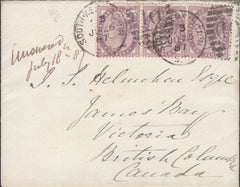 SOUTHSE
Answered
July 18
J. S. Helmcken Esqre
James' Bay
Victoria
British Columbia
Canada